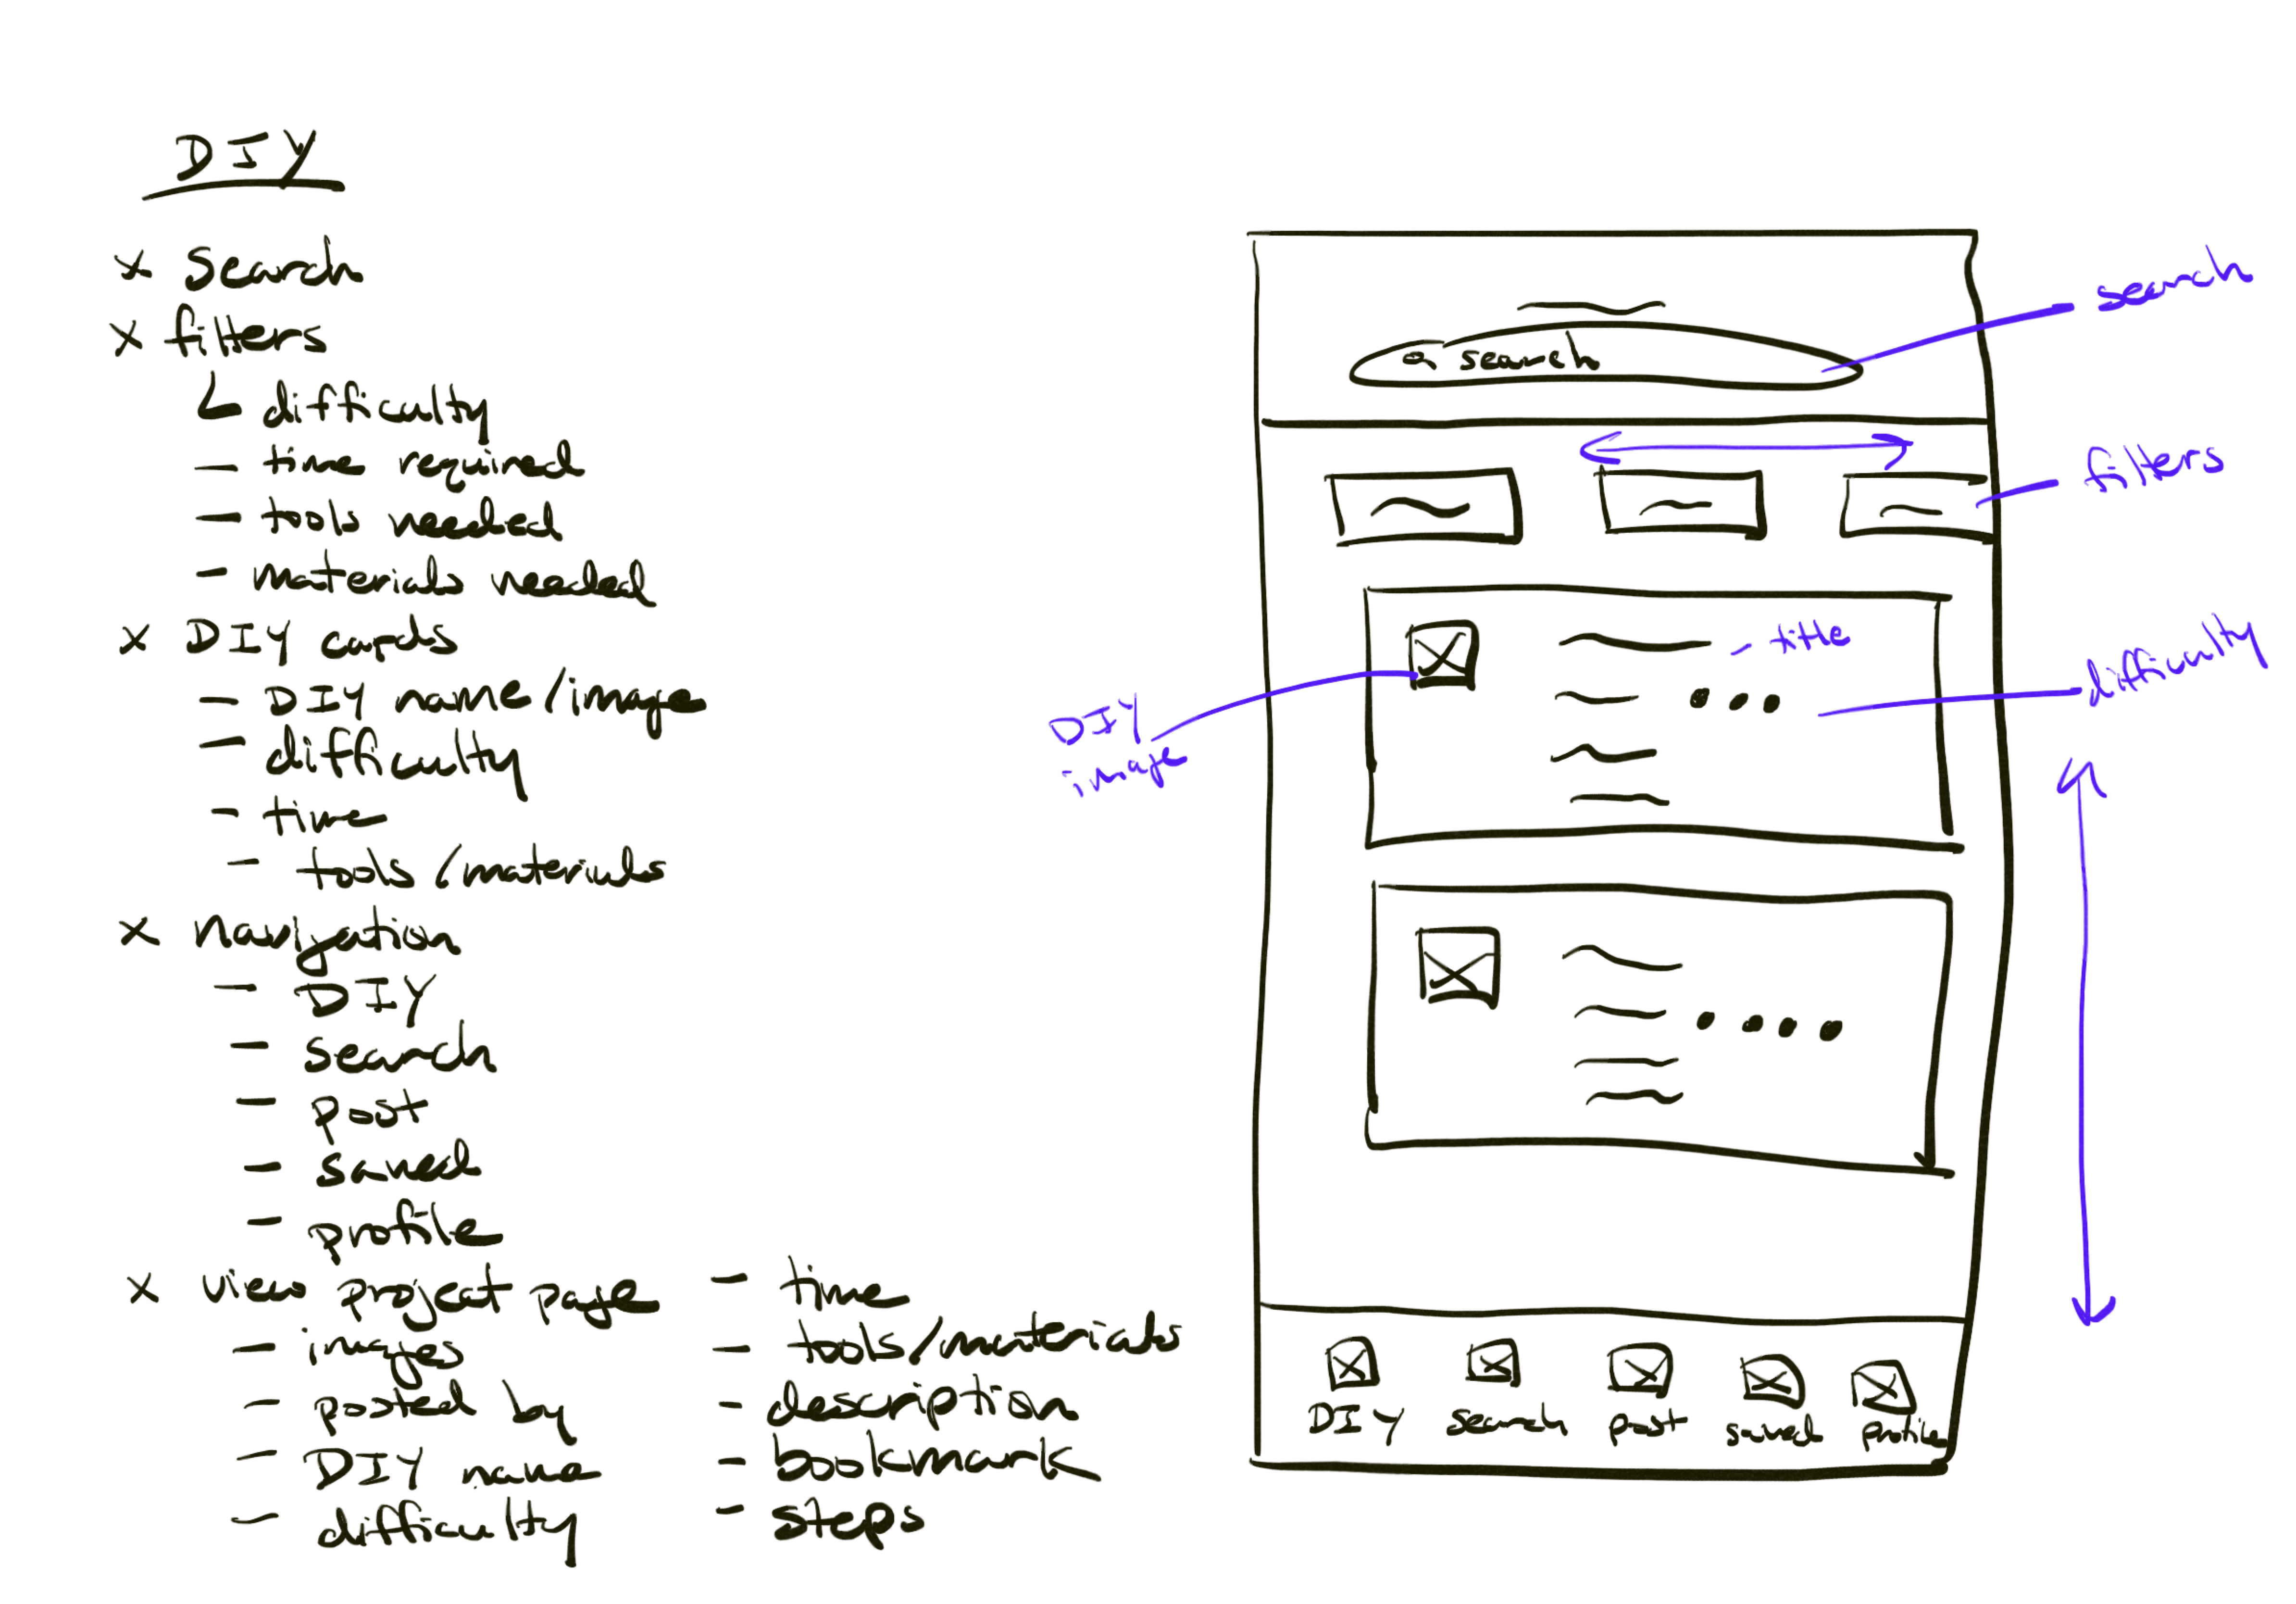 DIY
x search
x filters
- difficulty
- time required
- tools needed
- materials needed
x DIY cards
- DIY name/image
- difficulty
- time
- tools/materials
x navigation
- DIY
- search
- post
- saved
- profile
x view project page
- images
- posted by
- DIY name
- difficulty
- time
- tools/materials
- description
- bookmark
- steps
search
search
filters
- title
difficulty
DIY
image
DIY search post saved profile